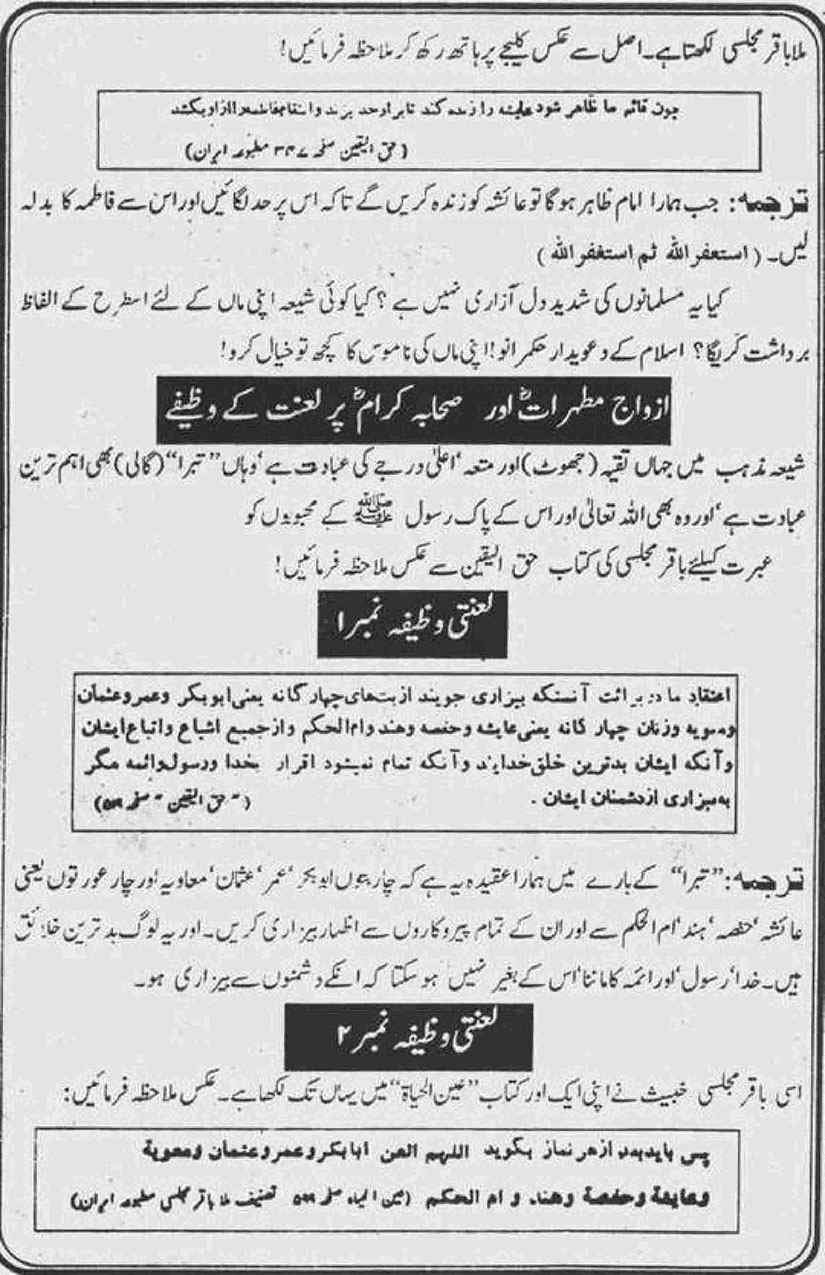 ملا باقر مجلسی لکھتا ہے۔ اصل سے عکس کلیجے پر ہاتھ رکھ کر ملاحظہ فرمائیں!
چون قائم ما ظاهر شود عایشه را زنده کند تا بر او حد بزند و انتقام فاطمه را از او بکشد
(حق الیقین صفحہ ۳۴۷ مطبوعہ ایران)
ترجمہ: جب ہمارا امام ظاہر ہوگا تو عائشہ کو زندہ کریں گے تاکہ اس پر حد لگائیں اور اس سے فاطمہ کا بدلہ
لیں۔ (استغفر اللہ ثم استغفر اللہ)
کیا یہ مسلمانوں کی شدید دل آزاری نہیں ہے؟ کیا کوئی شیعہ اپنی ماں کے لئے اسطرح کے الفاظ
برداشت کریگا؟ اسلام کے دعویدار حکمرانو! اپنی ماں کی ناموس کا کچھ تو خیال کرو!
ازواج مطہراتؓ اور صحابہ کرامؓ پر لعنت کے وظیفے
شیعہ مذہب میں جہاں تقیہ (جھوٹ) اور متعہ ‘اعلیٰ درجے کی عبادت ہے‘ وہاں ”تبرا“ (گالی) بھی اہم ترین
عبادت ہے‘ اور وہ بھی اللہ تعالیٰ اور اس کے پاک رسول ﷺ کے محبوبوں کو
عبرت کیلئے باقر مجلسی کی کتاب حق الیقین سے عکس ملاحظہ فرمائیں!
لعنتی وظیفہ نمبر ۱
اعتقاد ما در برائت آنستکه بیزاری جویند از بت‌های چهار گانه یعنی ابوبکر و عمر و عثمان
و معویه و زنان چهار گانه یعنی عایشه و حفصه و هند و ام الحکم و از جمیع اشیاع و اتباع ایشان
و آنکه ایشان بدترین خلق خدایند و آنکه تمام نمیشود اقرار بخدا و رسول و ائمه مگر
به بیزاری از دشمنان ایشان . (- حق الیقین - صفحہ ۵۱۹)
ترجمہ: ”تبرا“ کے بارے میں ہمارا عقیدہ یہ ہے کہ چار بتوں ابوبکر‘ عمر‘ عثمان‘ معاویہ اور چار عورتوں یعنی
عائشہ‘ حفصہ‘ ہند‘ ام الحکم سے اور ان کے تمام پیروکاروں سے اظہار بیزاری کریں۔ اور یہ لوگ بدترین خلائق
ہیں۔ خدا‘ رسول‘ اور ائمہ کا ماننا‘ اس کے بغیر نہیں ہو سکتا کہ انکے دشمنوں سے بیزاری ہو۔
لعنتی وظیفہ نمبر ۲
اسی باقر مجلسی خبیث نے اپنی ایک اور کتاب ”عین الحیاۃ“ میں یہاں تک لکھا ہے۔ عکس ملاحظہ فرمائیں:
پس باید بعد از هر نماز بگوید اللهم العن ابابکر و عمر و عثمان و معویة
و عایشة و حفصة و هند و ام الحکم (عین الحیاہ صفحہ ۵۹۹ تصنیف ملا باقر مجلسی مطبوعہ ایران)